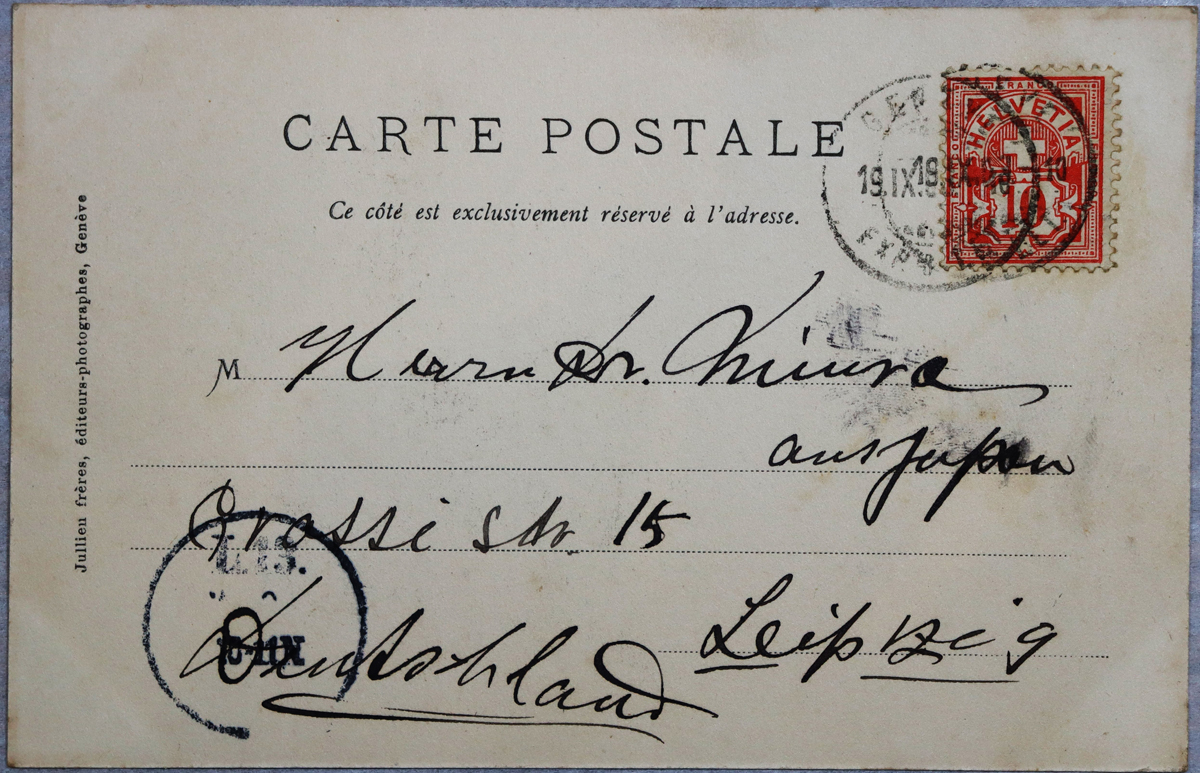 CARTE POSTALE
Ce côté est exclusivement réservé à l'adresse.
FRANCO
HELVETIA
10
19.IX
EXP.
M Herrn Dr. Miura
aus Japan
Grassi Str. 15
Leipzig
Deutschland
L.13.
8-11N
Jullien frères, éditeurs-photographes, Genève